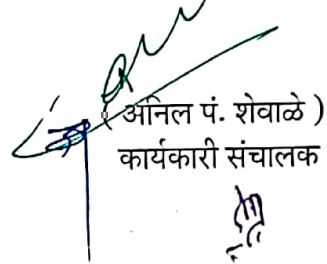 ( अनिल पं. शेवाळे )
कार्यकारी संचालक